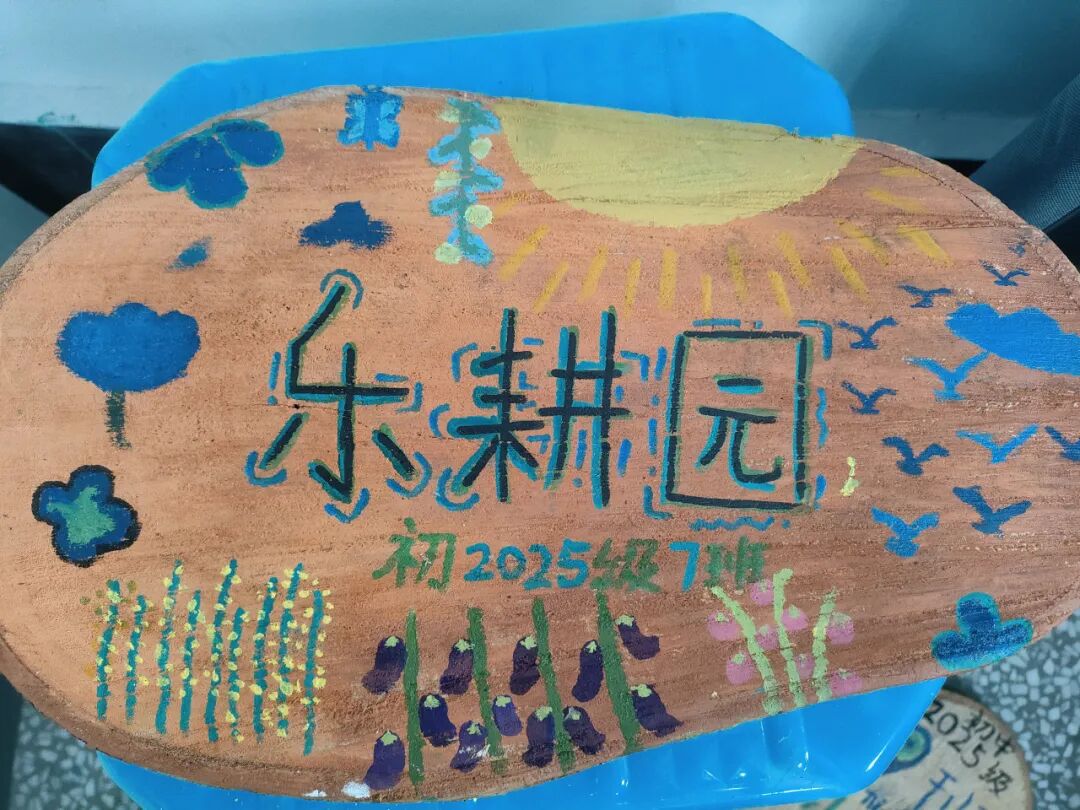 乐耕园
初2025级7班
初中
2025级